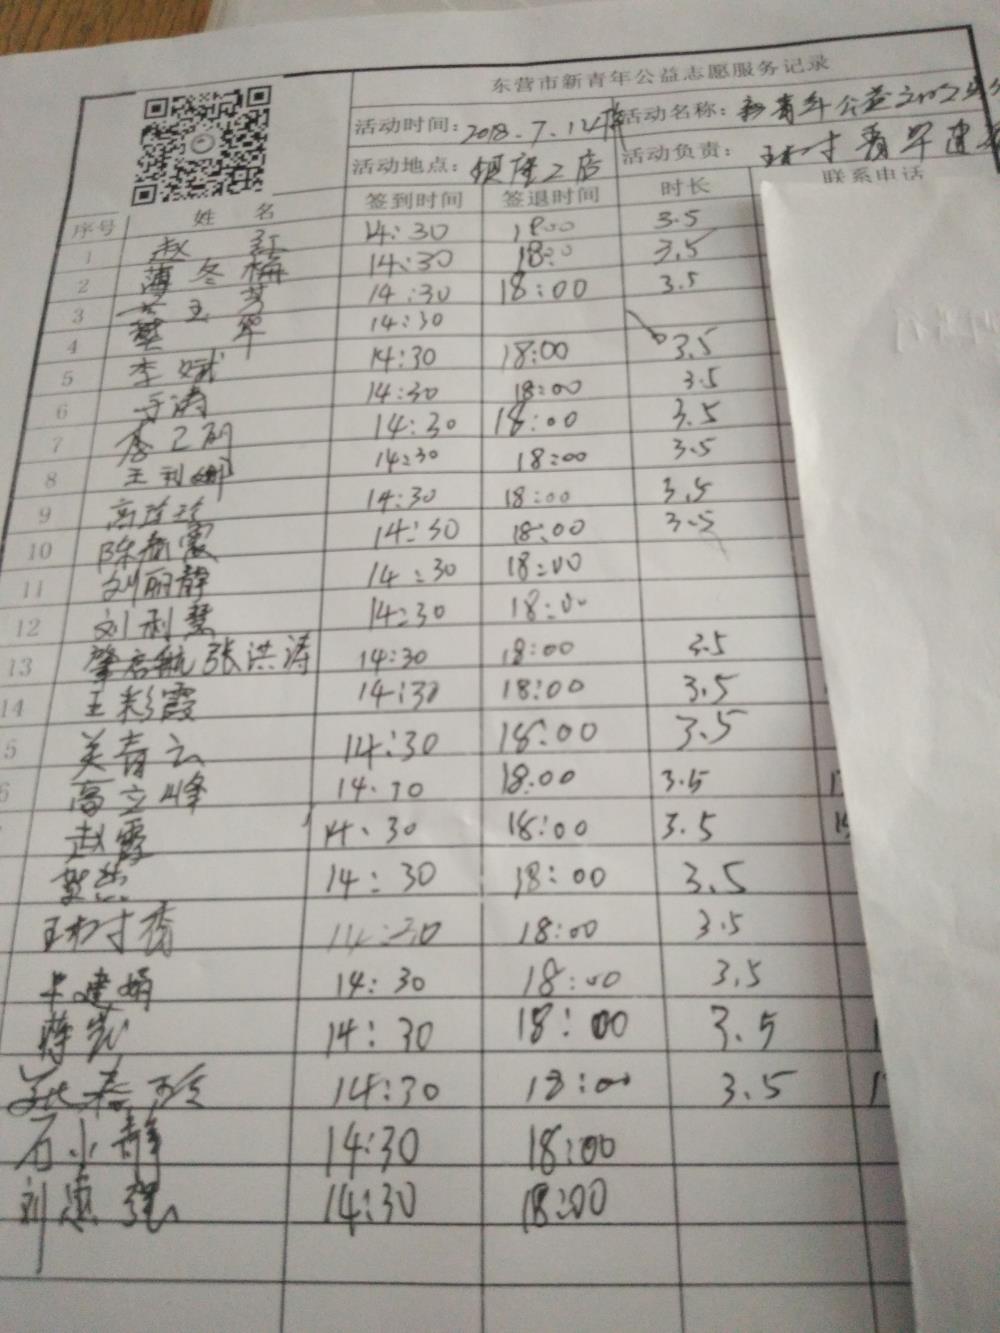 东营市新青年公益志愿服务记录
活动时间：2018.7.12 活动名称：新青年公益
活动地点：二店 活动负责：
序号 姓 名 签到时间 签退时间 时长 联系电话
1 赵 红 14:30 18:00 3.5
2 薄冬梅 14:30 18:0 3.5
3 玉芳 14:30 18:00 3.5
4 14:30
5 李斌 14:30 18:00 3.5
6 于涛 14:30 18:00 3.5
7 李 14:30 18:00 3.5
8 王利娜 14:30 18:00 3.5
9 高玲玲 14:30 18:00 3.5
10 陈 霞 14:30 18:00 3.5
11 刘丽静 14:30 18:00
12 刘利慧 14:30 18:00
13 肇启航 张洪涛 14:30 18:00 3.5
14 王彩霞 14:30 18:00 3.5
5 美青云 14:30 18:00 3.5
6 高立峰 14:30 18:00 3.5
赵霞 14:30 18:00 3.5
14:30 18:00 3.5
王树香 14:30 18:00 3.5
卞建娟 14:30 18:00 3.5
14:30 18:00 3.5
14:30 18:00 3.5
石小静 14:30 18:00
刘忠强 14:30 18:00